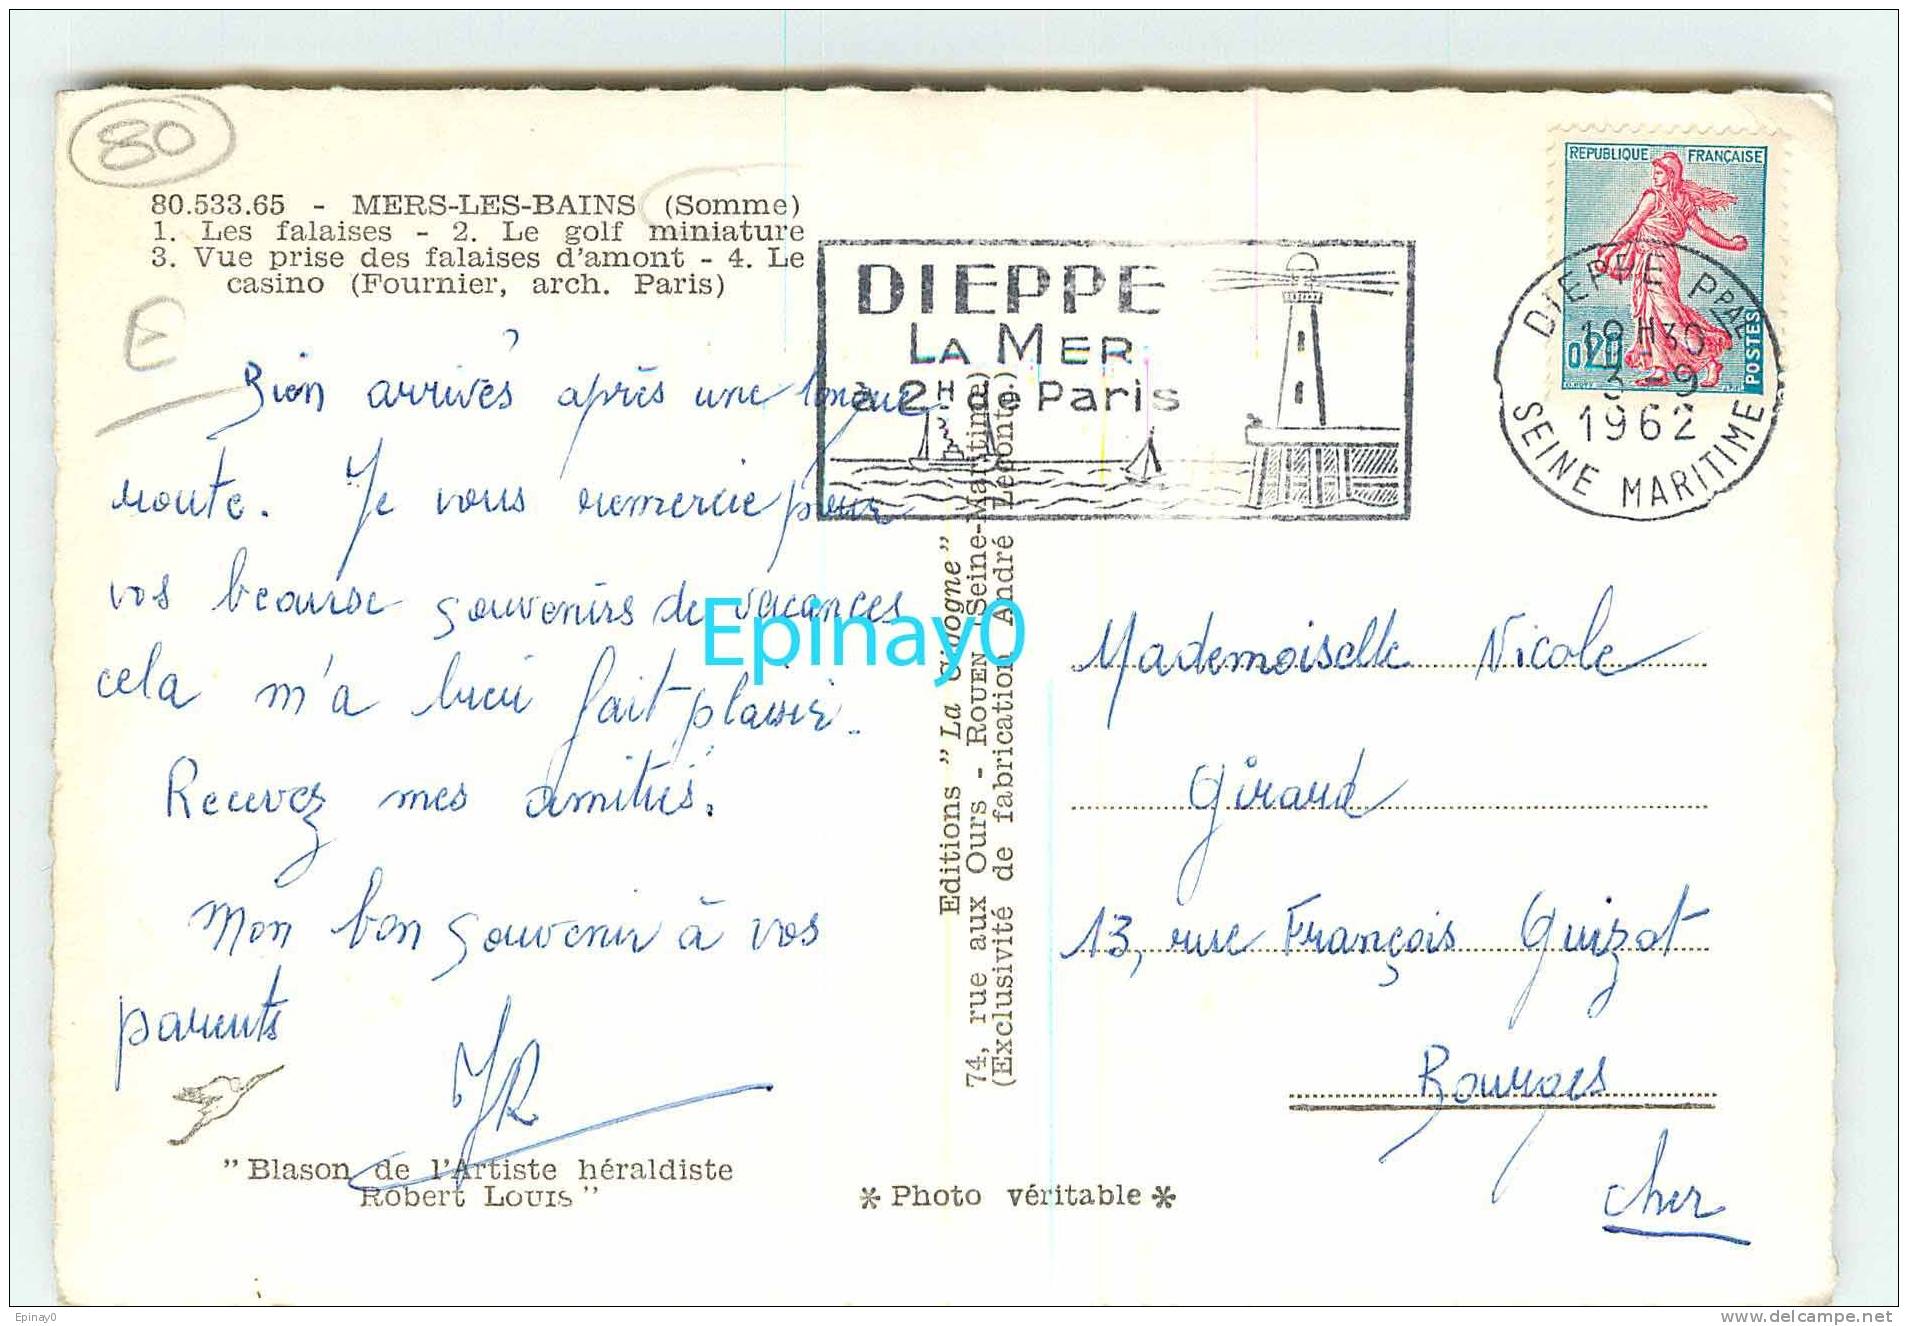 80
80.533.65 - MERS-LES-BAINS (Somme)
1. Les falaises - 2. Le golf miniature
3. Vue prise des falaises d'amont - 4. Le
casino (Fournier, arch. Paris)
E
Bien arrivés après une longue
route. Je vous remercie pour
vos beaux souvenirs de vacances
cela m'a bien fait plaisir.
Recevez mes amitiés.
Mon bon souvenir à vos
parents
JR
"Blason de l'Artiste héraldiste
Robert LOUIS"
DIEPPE
LA MER
à 2H de Paris
REPUBLIQUE FRANÇAISE
0,20
POSTES
DIEPPE PPAL
3-9
1962
SEINE MARITIME
Editions "La Cigogne"
74, rue aux Ours - ROUEN (Seine-Maritime)
(Exclusivité de fabrication André Leconte)
* Photo véritable *
Mademoiselle Nicole
Girard
13, rue François Guizot
Bourges
Cher
Epinay0
Epinay0
www.delcampe.net